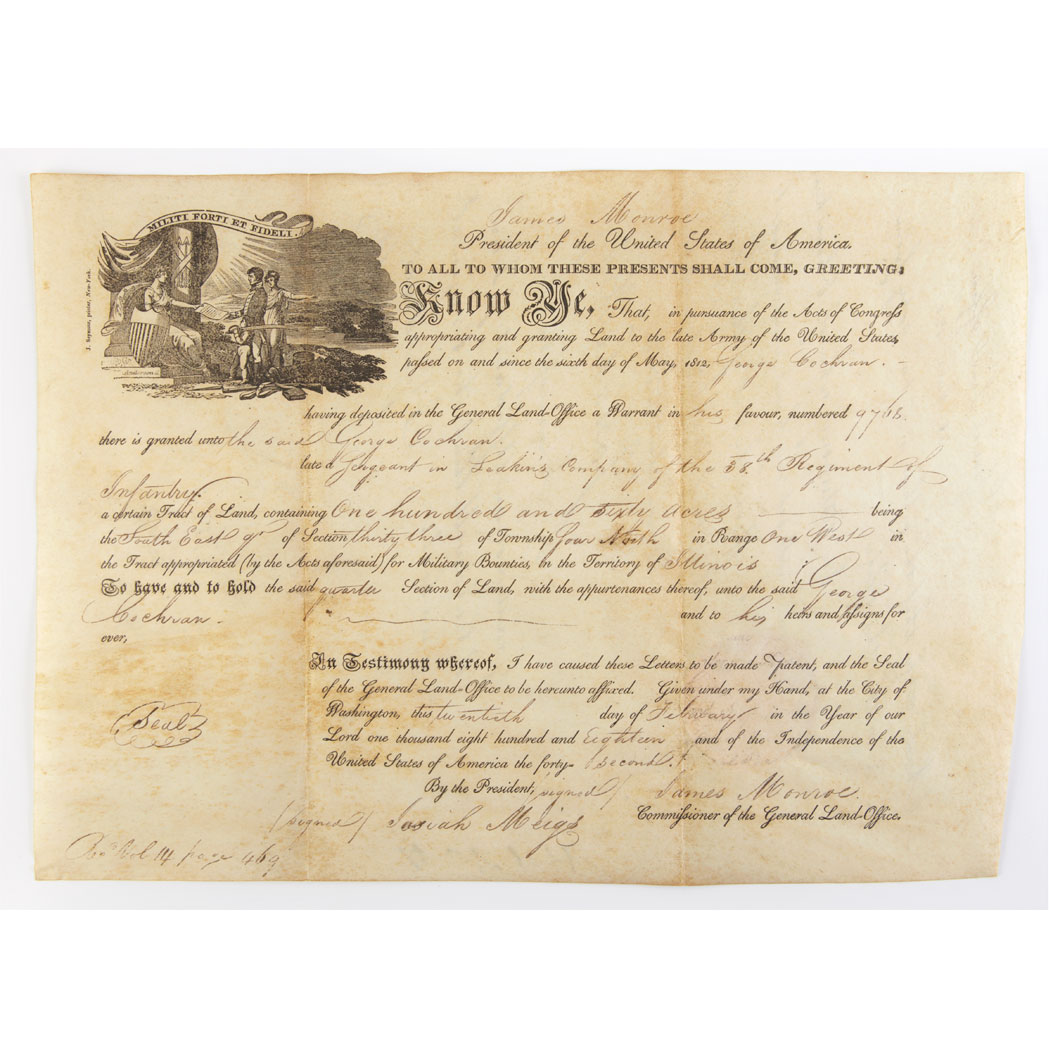 MILITI FORTI ET FIDELI.
J. Seymour, printer, New-York.
James Monroe
President of the United States of America,
TO ALL TO WHOM THESE PRESENTS SHALL COME, GREETING:
Know Ye, That, in pursuance of the Acts of Congress
appropriating and granting Land to the late Army of the United States,
passed on and since the sixth day of May, 1812, George Cochran. -
having deposited in the General Land-Office a Warrant in his favour, numbered 9768
there is granted unto the said George Cochran.
late a Sergeant in Leakin's Company of the 38th Regiment of
Infantry.
a certain Tract of Land, containing One hundred and sixty acres being
the South East qr of Section thirty three of Township four North in Range One West in
the Tract appropriated (by the Acts aforesaid) for Military Bounties, in the Territory of Illinois
To have and to hold the said quarter Section of Land, with the appurtenances thereof, unto the said George
Cochran. and to his heirs and assigns for
ever,
In Testimony whereof, I have caused these Letters to be made Patent, and the Seal
of the General Land-Office to be hereunto affixed. Given under my Hand, at the City of
Washington, this twentieth day of February in the Year of our
Lord one thousand eight hundred and Eighteen and of the Independence of the
United States of America the forty- second.
By the President, (signed) James Monroe.
(signed) Josiah Meigs Commissioner of the General Land-Office.
Seal
Vol 14 page 469